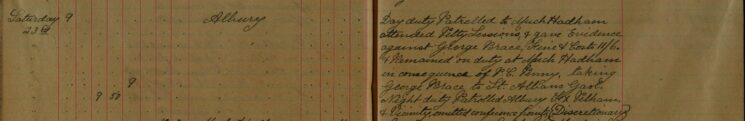 Saturday 9 Albury
23rd
9
9 50
Day duty Patrolled to Much Hadham
attended Petty Sessions, & gave Evidence
against George Brace, Fine & Costs 11/6.
& Remained on duty at Much Hadham
in consequence of P.C. Penny, taking
George Brace to St. Albans Gaol.
Night duty Patrolled Albury Fx Pelham,
& Vicinity, omitted conference points (Discretionary)